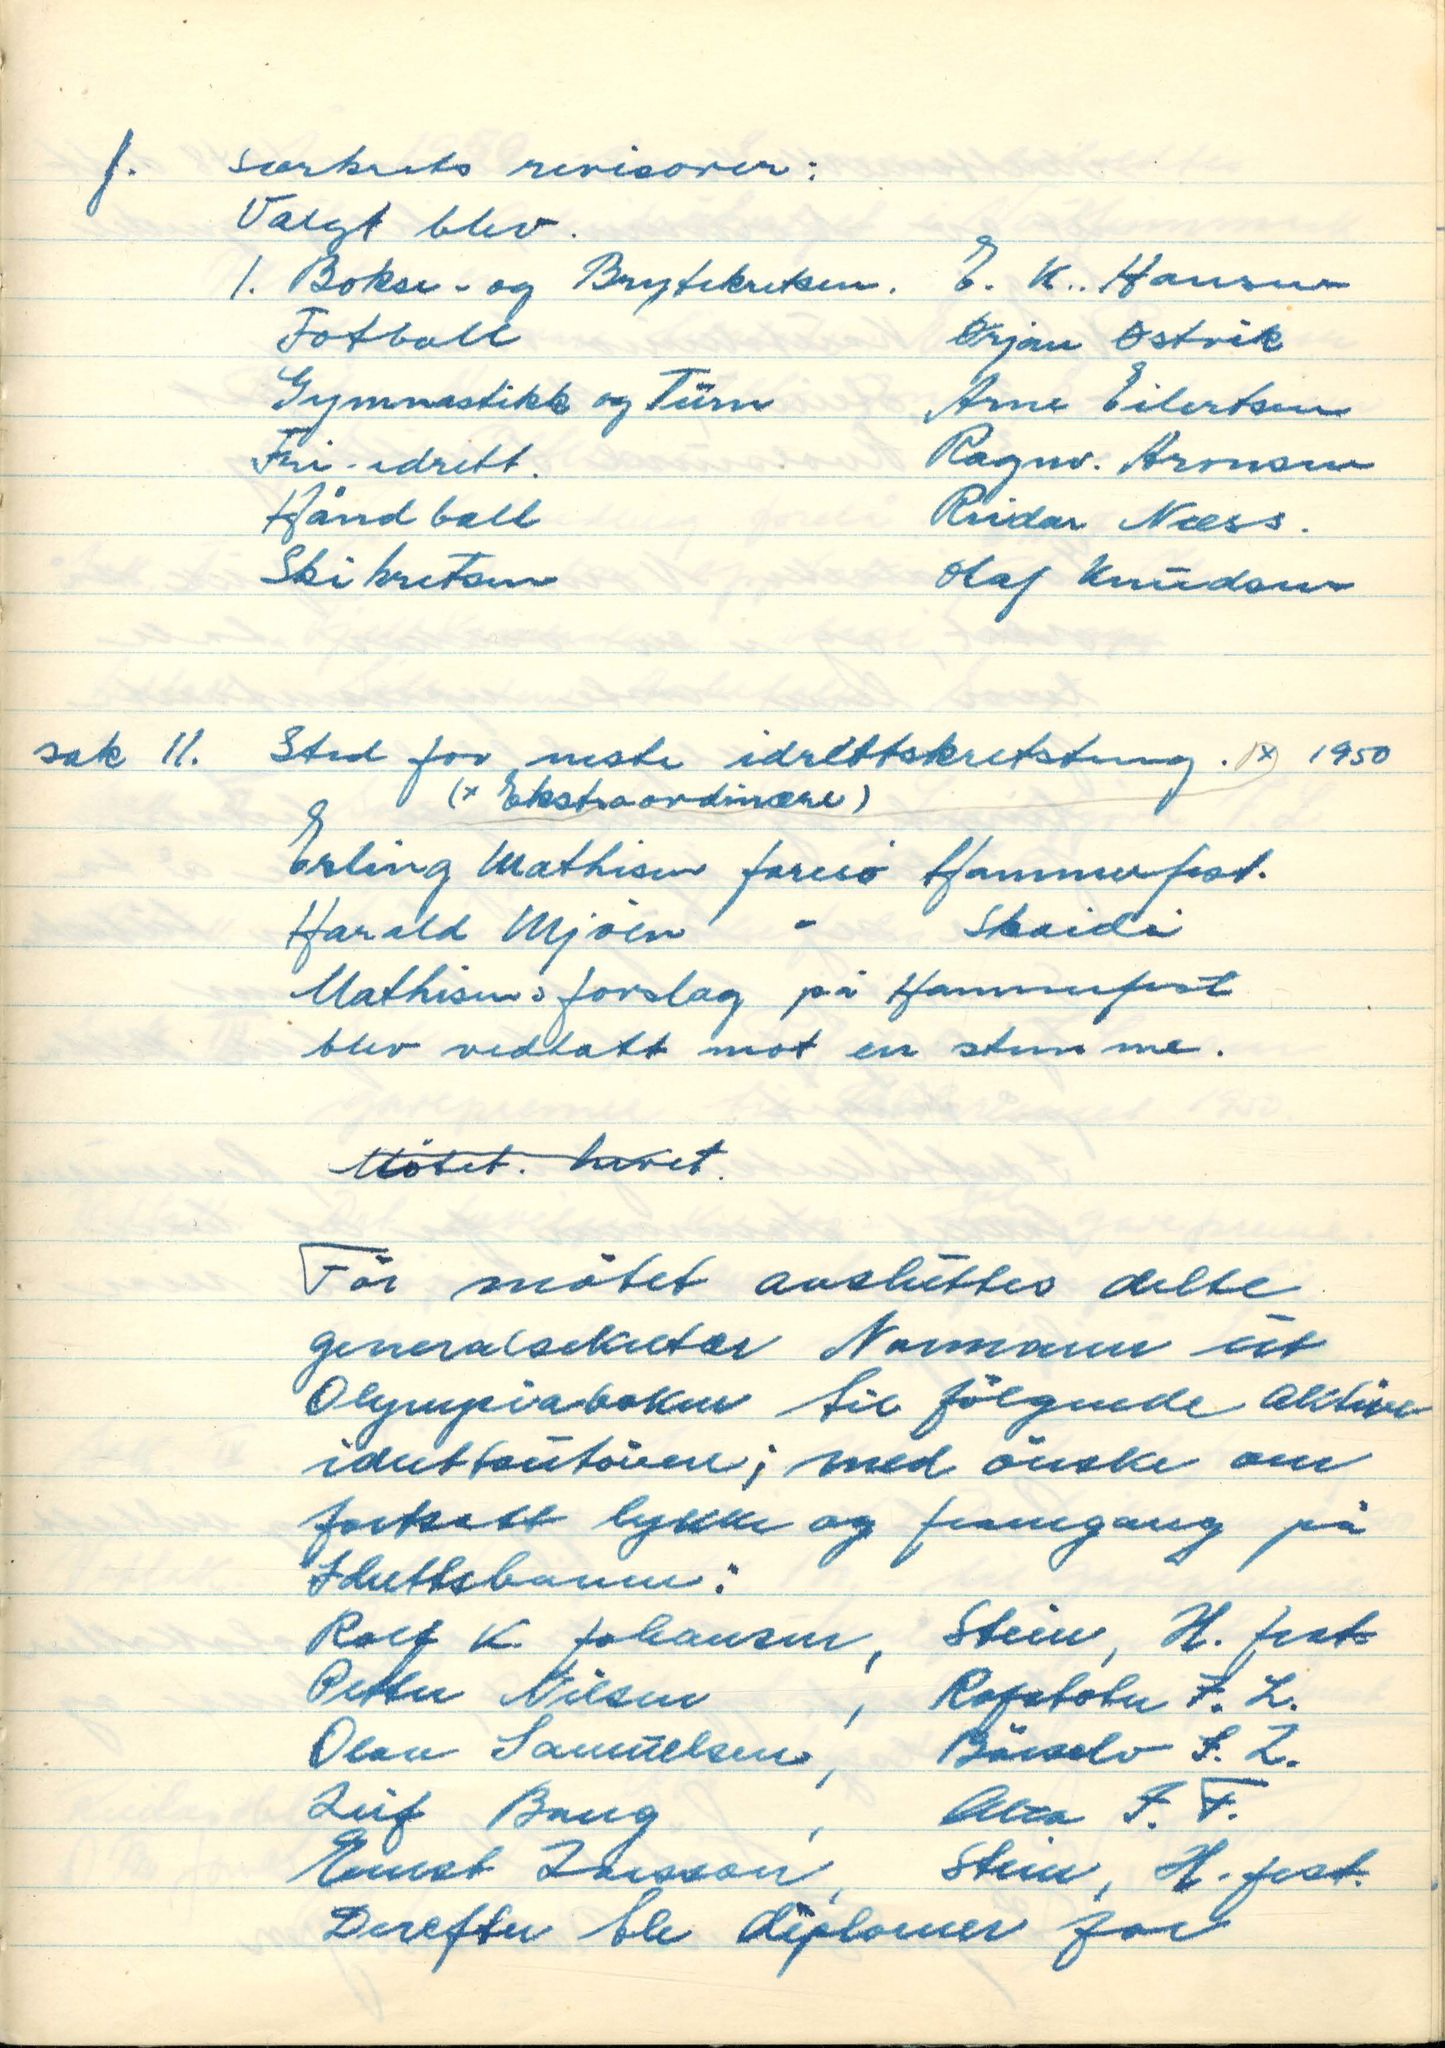 f. særkrets revisorer:
Valgt blev.
1. Bokse- og Brytekretsen. E. K. Hansen
Fotball Ørjan Østvik
Gymnastikk og Turn Arne Eilertsen
Fri-idrett. Ragnv. Aronsen
Håndball Reidar Næss.
Skikretsen Olaf Knudsen
sak 11. Sted for neste idrettskretsting. (x) 1950
(x Ekstraordinære)
Erling Mathisen foreslo Hammerfest.
Harald Mjöen - Skaidi
Mathisens forslag på Hammerfest
blev vedtatt mot en stemme.
Mötet. hevet.
För mötet avsluttes delte
generalsekretær Normann ut
Olympiaboken til fölgende aktive
idrettsutövere; med önske om
fortsatt lykke og framgang på
Idrettsbanen:
Rolf K. Johansen, Stein, H. fest
Petter Nilsen , Rafsbotn I. L.
Olav Samuelsen, Börselv I. L.
Leif Bang , Alta I. F.
Ernst Larsson, Stein, H. fest.
Derefter ble diplomer for